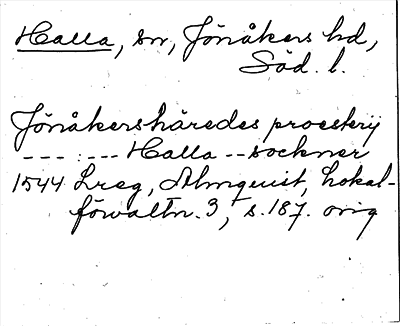 Halla, sn, Jönåkers hd,
Söd. l.
Jönåkershäredes proesterij
--- : --- Halla -- sockner
1544 Lreg, Almquist, Lokal-
förvaltn. 3, s. 187. orig